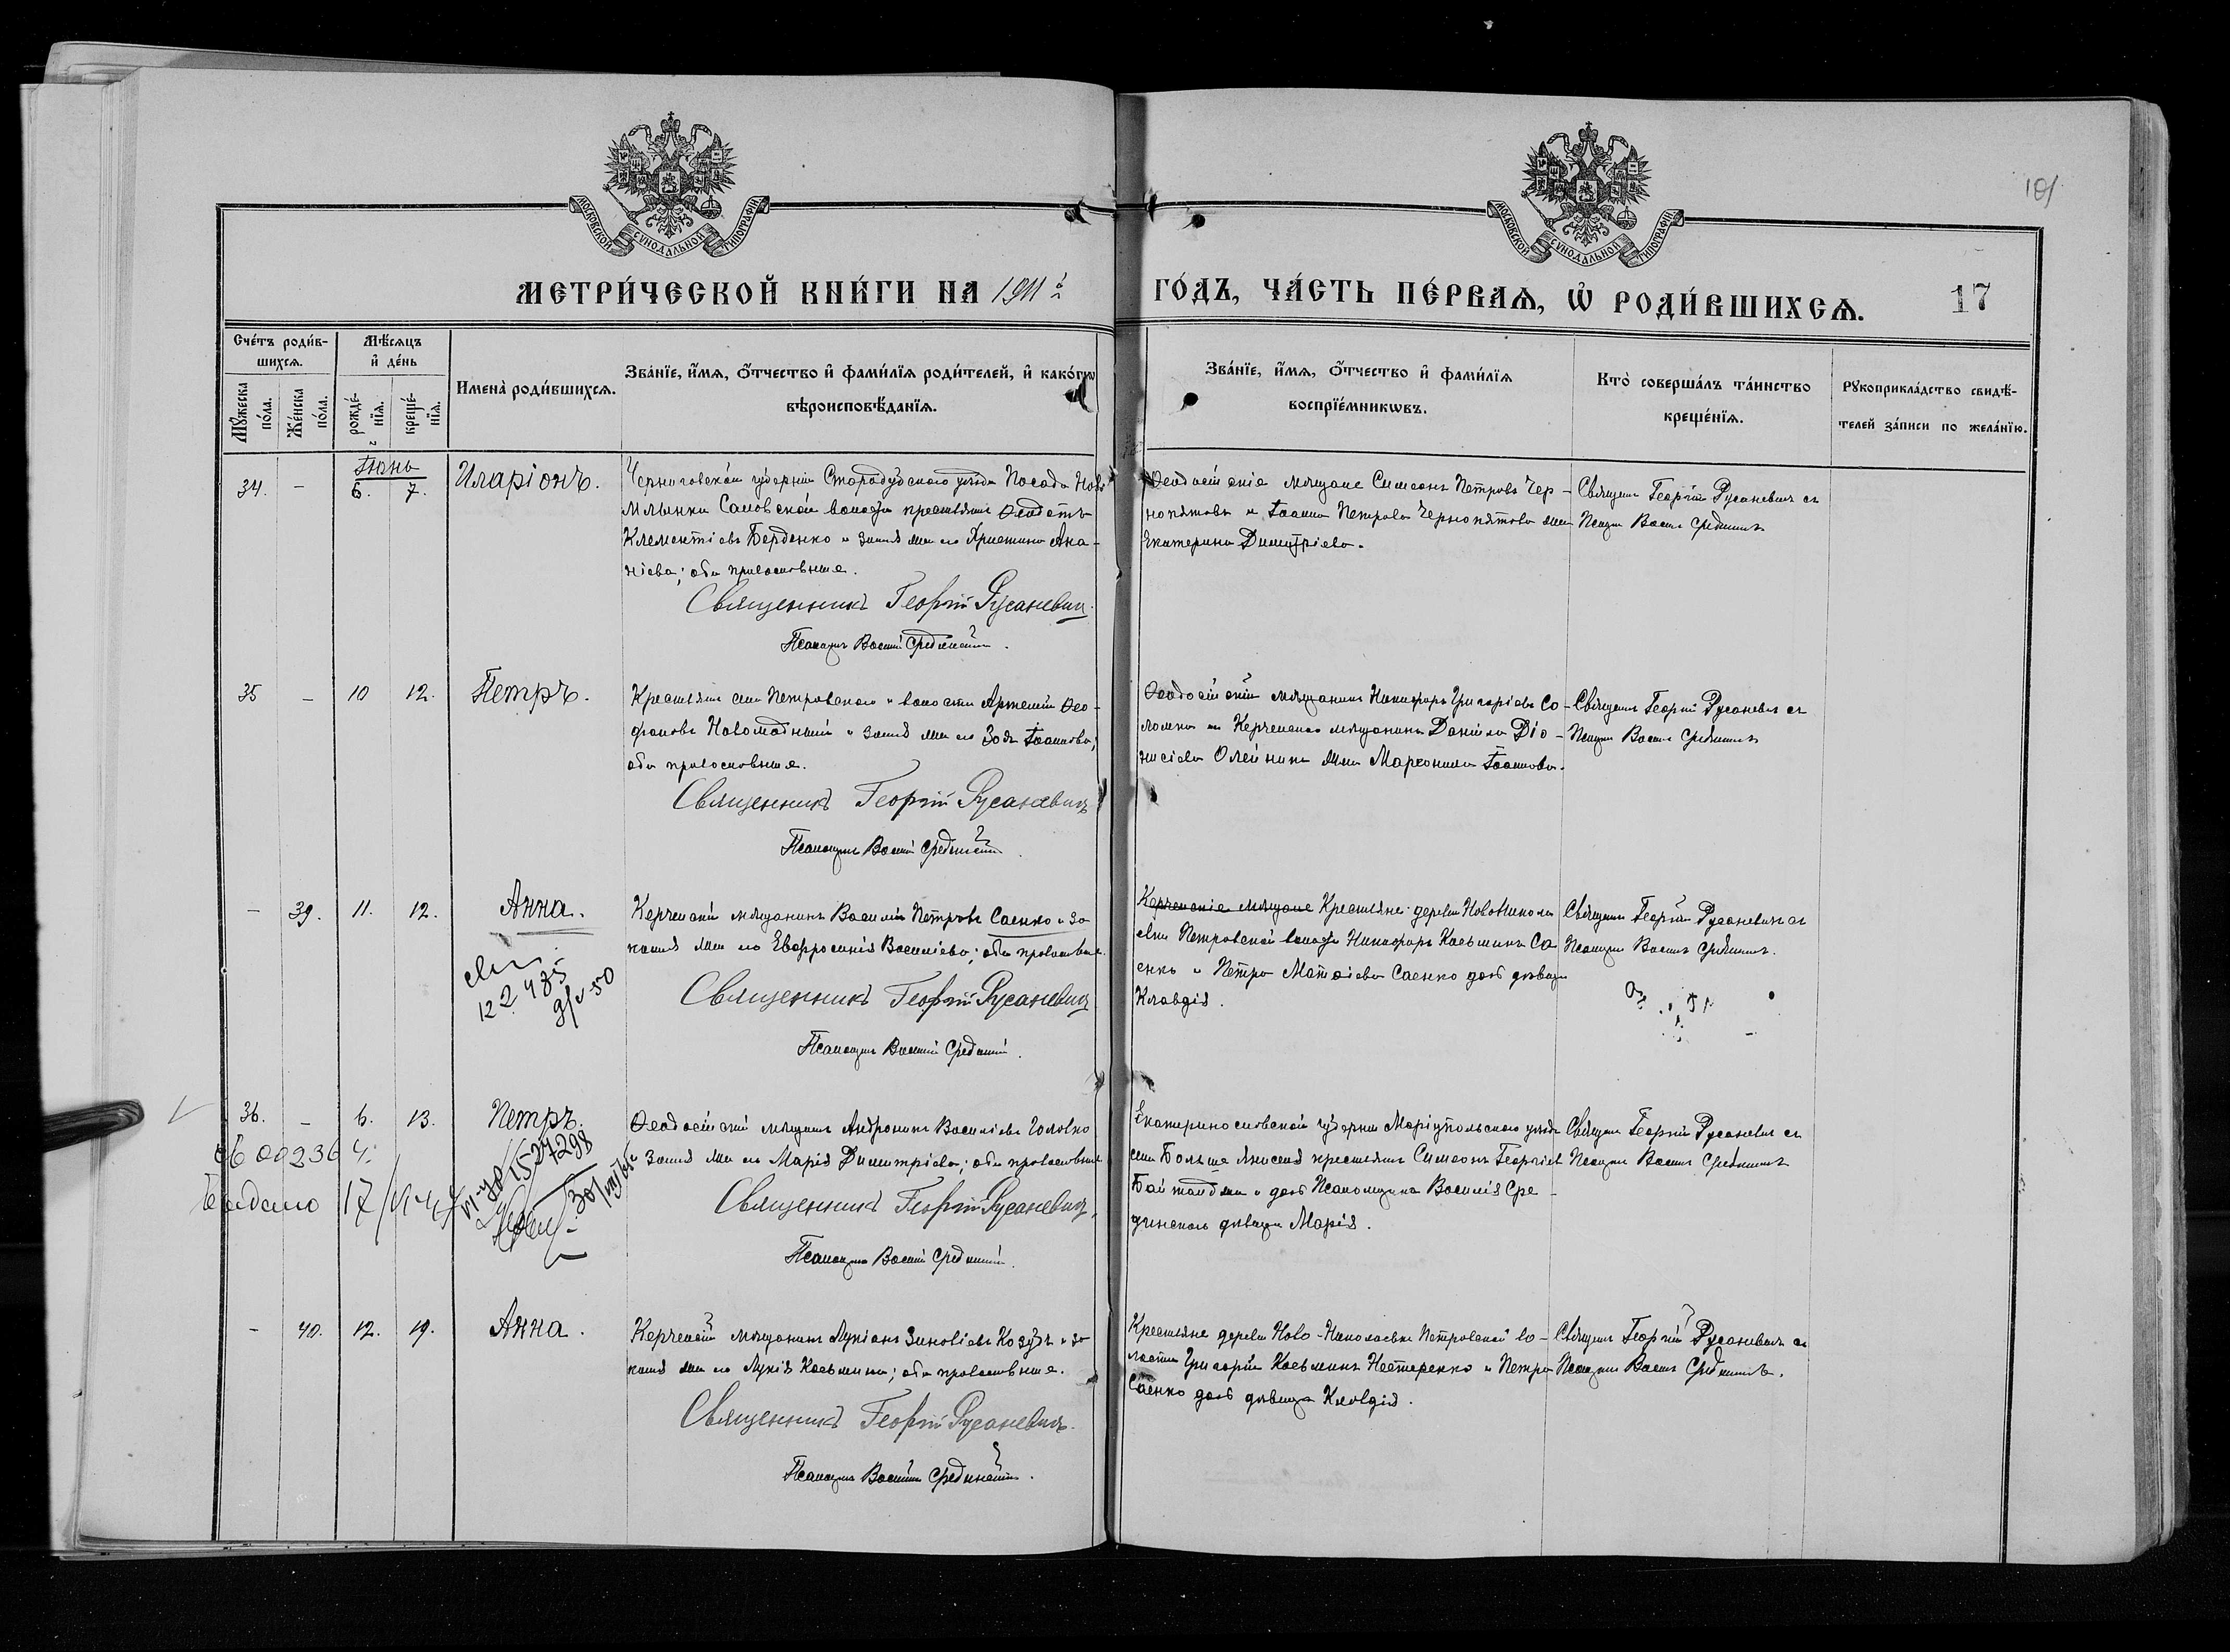 101
МОСКОВСКОЙ СѴНОДАЛЬНОЙ ТИПОГРАФІИ
МОСКОВСКОЙ СѴНОДАЛЬНОЙ ТИПОГРАФІИ
МЕТРИ́ЧЕСКОЙ КНИ́ГИ НА 1911й ГО́ДЪ, ЧА́СТЬ ПЕ́РВАѦ, Ѡ҆ РОДИ́ВШИХСѦ. 17
Сче́тъ роди́в-
шихсѧ.
Мꙋ́жеска по́ла.
Же́нска по́ла.
Мѣ́сѧцъ и҆ де́нь
рожде́-
нїѧ.
креще́-
нїѧ.
Имена̀ роди́вшихсѧ.
Зва́нїе, и҆́мѧ, ѻ҆́тчество и҆ фами́лїѧ роди́телей, и҆ како́гѡ
вѣроисповѣ́данїѧ.
Зва́нїе, и҆́мѧ, ѻ҆́тчество и҆ фами́лїѧ
воспрїе́мникѡвъ.
Кто̀ соверша́лъ та́инство
креще́нїѧ.
Рꙋкоприкла́дство свидѣ́-
телей за́писи по жела́нїю.
Іюнь
34. - 6. 7. Иларіонъ.
Черниговской губерніи Стародубскаго уѣзда Посада Ново
Млынки волости Ѳеодотъ
Климентіевъ Берденко и его Христина Ана-
ніева; оба православные.
Священникъ Георгій Русаневич
Псаломщикъ Василій Срединскій.
Ѳеодосійскіе мѣщане Симеонъ Петровъ Чер-
нопятовъ и Іоанна Петрова Чернопятова
Екатерина Димитріева.
Священ Георгій Русаневич съ
Псалом Васил Срединскимъ
35 - 10 12. Петръ.
Крестьянинъ села Петровскаго и волости Артемій Ѳео-
фановъ и его Зоя Іоаннова;
оба православные.
Священникъ Георгій Русаневич
Псаломщикъ Василій Срединскій.
Ѳеодосійскій мѣщанинъ Никифоръ Григоріевъ Со-
ломка и Керченскаго мѣщанина Даніила Діо-
нисіева Олейника Іоаннова.
Священ Георгій Русаневич съ
Псалом Васил Срединскимъ
- 39. 11. 12. Анна.
9/V-50
Керченскій мѣщанинъ Василій Петровъ Саенко и за-
конная его Евфросинія Васильева; оба православные.
Священникъ Георгій Русаневич
Псаломщикъ Василій Срединскій.
Керченскіе мѣщане Крестьяне деревни Новоникола
евки Петровской волости Никифоръ Косьминъ Са
енко и Петра Матѳіева Саенко дочь дѣвица
Клавдія.
Священ Георгій Русаневич съ
Псалом Васил Срединскимъ.
36. - 6. 13. Петръ.
Ѳеодосійскій мѣщанинъ Андроникъ Васильевъ Головко
и его Марія Димитріева; оба православные
Священникъ Георгій Русаневич,
Псаломщикъ Василій Срединскій.
Екатеринославской губерніи Маріупольскаго уѣзда
села Больше Янисоля крестьянинъ Симеонъ Георгіевъ
и дочь Псаломщика Василія Сре-
динскаго дѣвица Марія.
Священ Георгій Русаневич съ
Псалом Васил Срединскимъ
- 40. 12. 19. Анна.
Керченскій мѣщанинъ Лукіанъ Зиновіевъ Козубъ и за-
конная его Лукія Косьмина; оба православные.
Священникъ Георгій Русаневич.
Псаломщикъ Василій Срединскій.
Крестьяне деревни Ново-Николаевки Петровской во-
лости Григорій Косьминъ Нестеренко и Петра
Саенко дочь дѣвица Клавдія.
Священ Георгій Русаневич съ
Псалом Васил Срединскимъ.